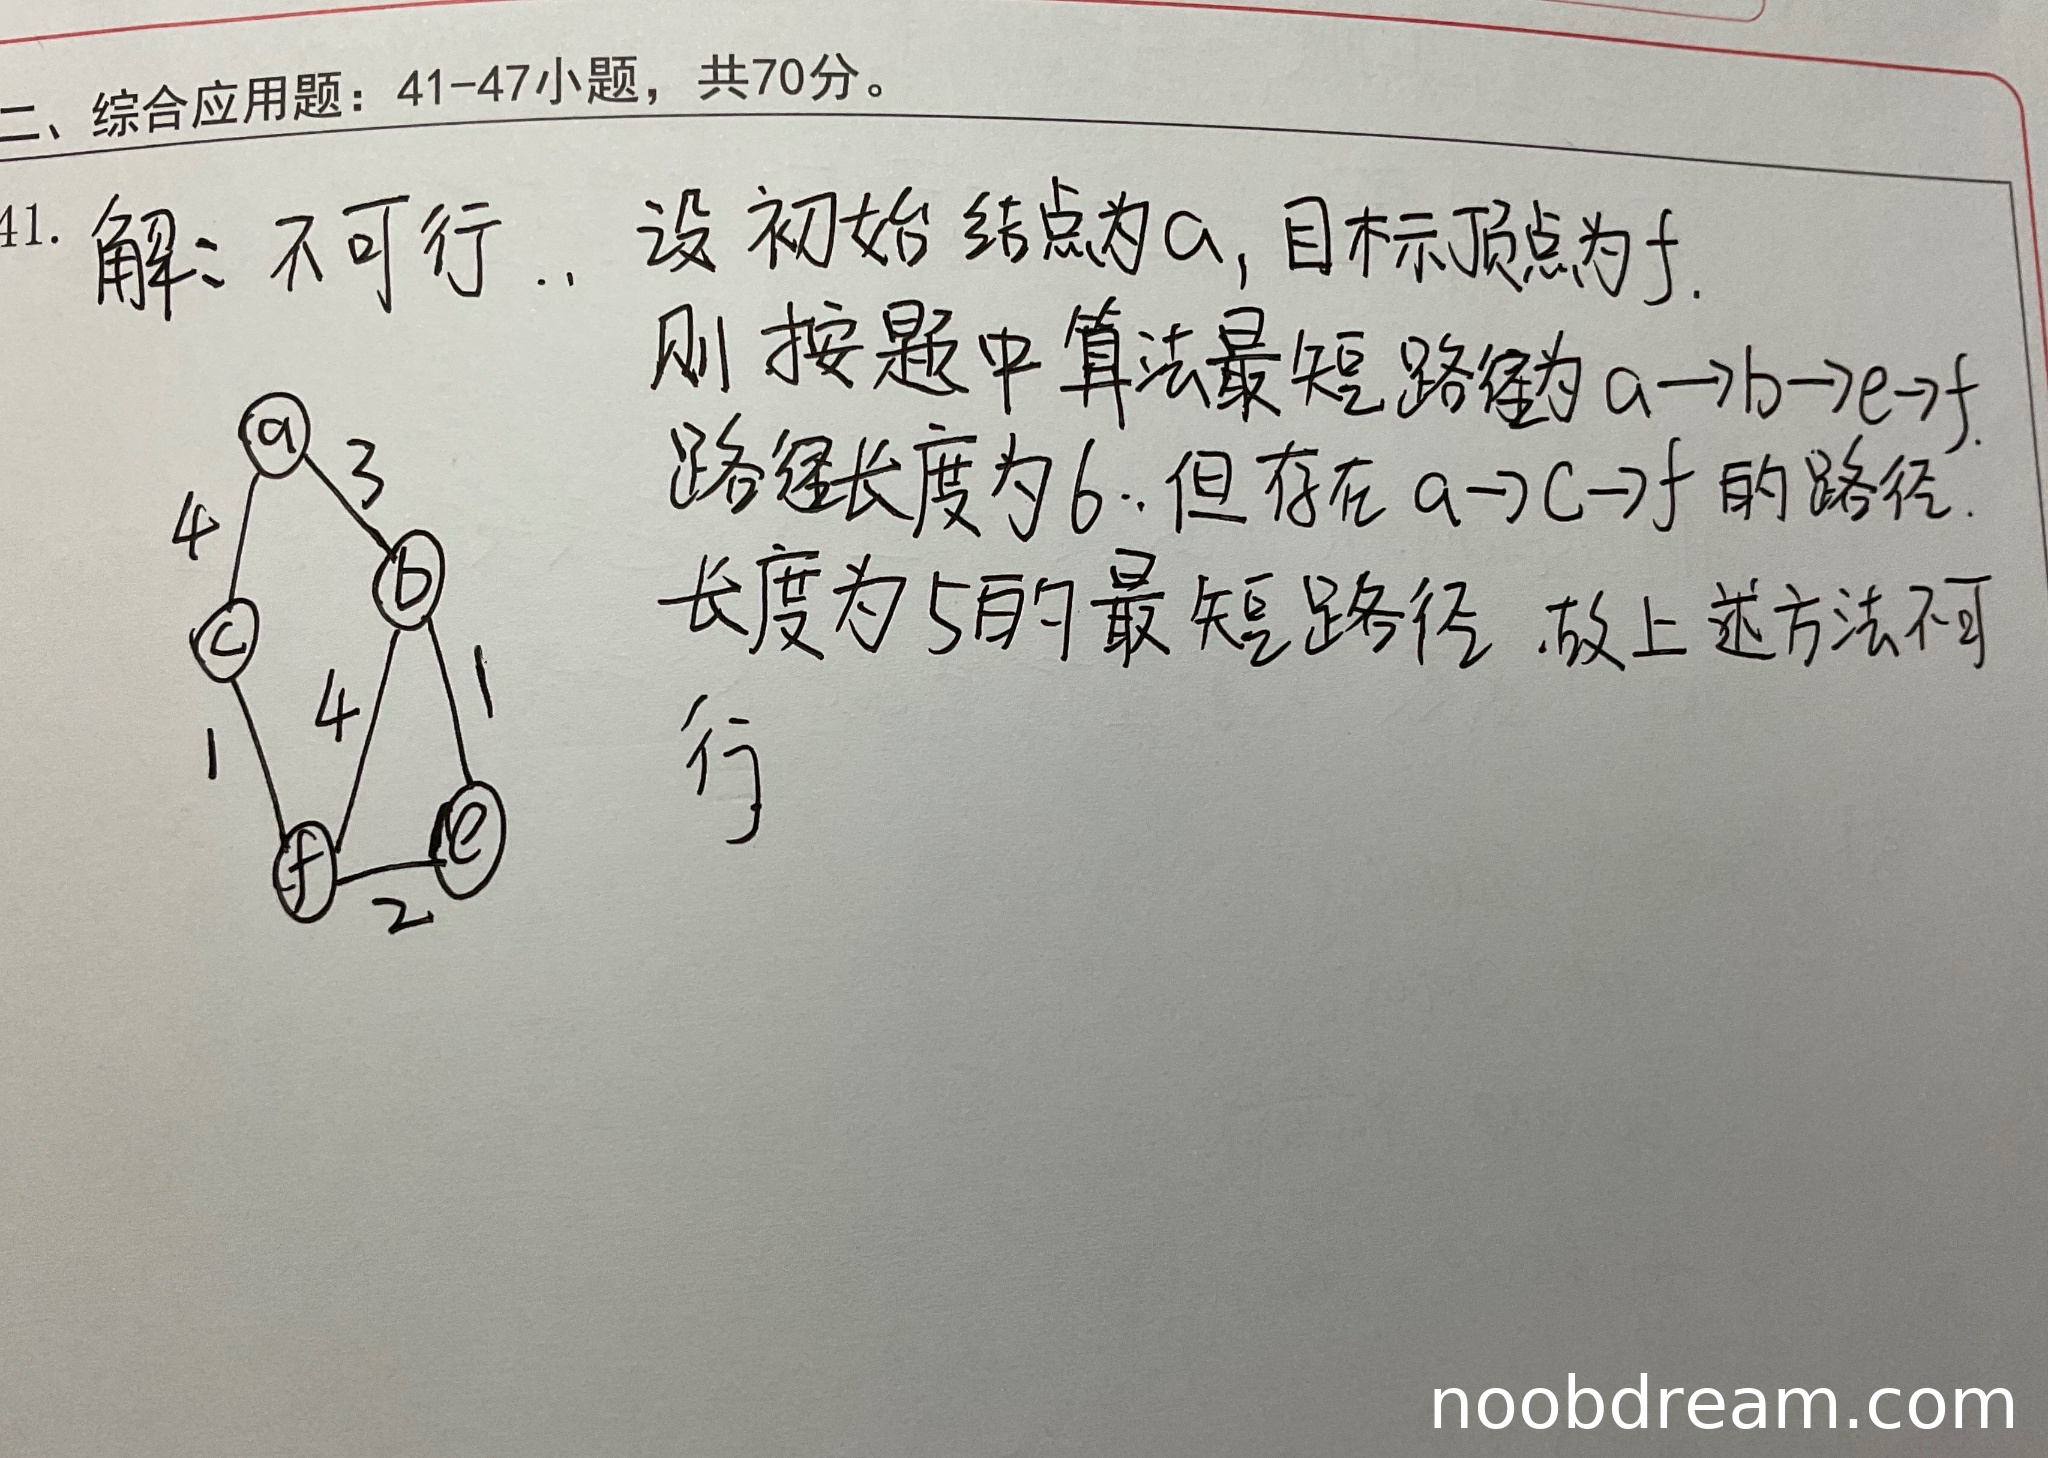 二、综合应用题：41-47小题，共70分。
41. 解：不可行.. 设初始结点为a，目标顶点为f.
则按题中算法最短路径为a→b→e→f.
路径长度为6.. 但存在a→c→f的路径.
长度为5的最短路径.故上述方法不可
行
a
3
4
b
c
4
1
1
e
f
2
noobdream.com